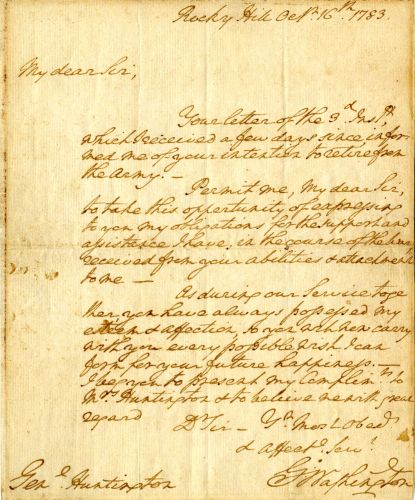 Rocky Hill Octr. 16th. 1783.
My dear Sir,
Your letter of the 3d. Instt.,
which I received a few days since infor
med me of your intention to retire from
the Army. —
Permit me, My dear Sir,
to take this opportunity of expressing
to you my obligations for the support and
assistance I have, in the course of the War
received from your abilities & attachment
to me —
As during our Service toge
ther you have always possessed my
esteem & affection, so you will now carry
with you every possible wish I can
form for your future happiness. —
I beg you to present my Complimts. to
Mrs. Huntington & to believe me with great
regard Dr Sir — Yr. Most Obedt.
& affecte. Servt.
Genl. Huntington G:Washington